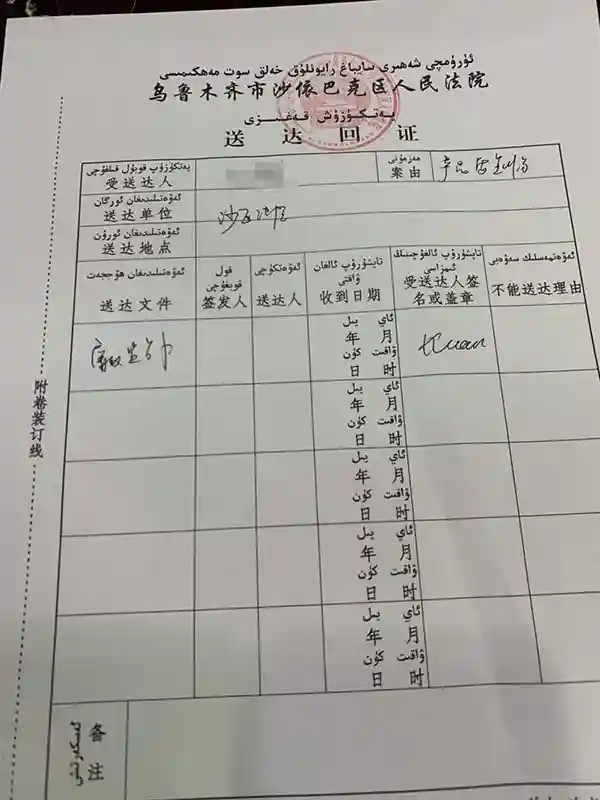 ئۈرۈمچى شەھىرى سايباغ رايونلۇق خەلق سوت مەھكىمىسى
乌鲁木齐市沙依巴克区人民法院
يەتكۈزۈش قەغىزى
送 达 回 证
يەتكۈزۈپ قوبۇل قىلغۇچى
受送达人
مەزمۇنى
案由
ئەۋەتىلىدىغان ئورگان
送达单位
ئەۋەتىلىدىغان ئورۇن
送达地点
ئەۋەتىلىدىغان ھۆججەت
送达文件
قول قويغۇچى
签发人
ئەۋەتكۈچى
送达人
تاپشۇرۇپ ئالغان ۋاقتى
收到日期
تاپشۇرۇپ ئالغۇچىنىڭ ئىمزاسى
受送达人签
名或盖章
ئەۋەتمەسلىك سەۋەبى
不能送达理由
ئاي يىل
年 月
ۋاقىت كۈن
日 时
ئاي يىل
年 月
ۋاقىت كۈن
日 时
ئاي يىل
年 月
ۋاقىت كۈن
日 时
ئاي يىل
年 月
ۋاقىت كۈن
日 时
ئاي يىل
年 月
ۋاقىت كۈن
日 时
ئەسكەرتىش
备注
附卷装订线